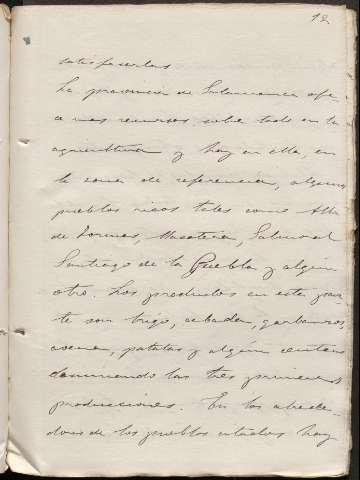 12
satisfacerlas
La provincia de Salamanca ofre-
ce mas recursos sobre todo en la
agricultura y hay en ella, en
la zona de referencia, algunos
pueblos ricos tales como Alba
de Tormes, Macotera, Salmoral
Santiago de la Puebla y algún
otro. Los productos en esta par-
te son trigo, cebada, garbanzos,
avena, patatas y algún centeno
dominando las tres primeras
producciones. En los alrede-
dores de los pueblos citados hay